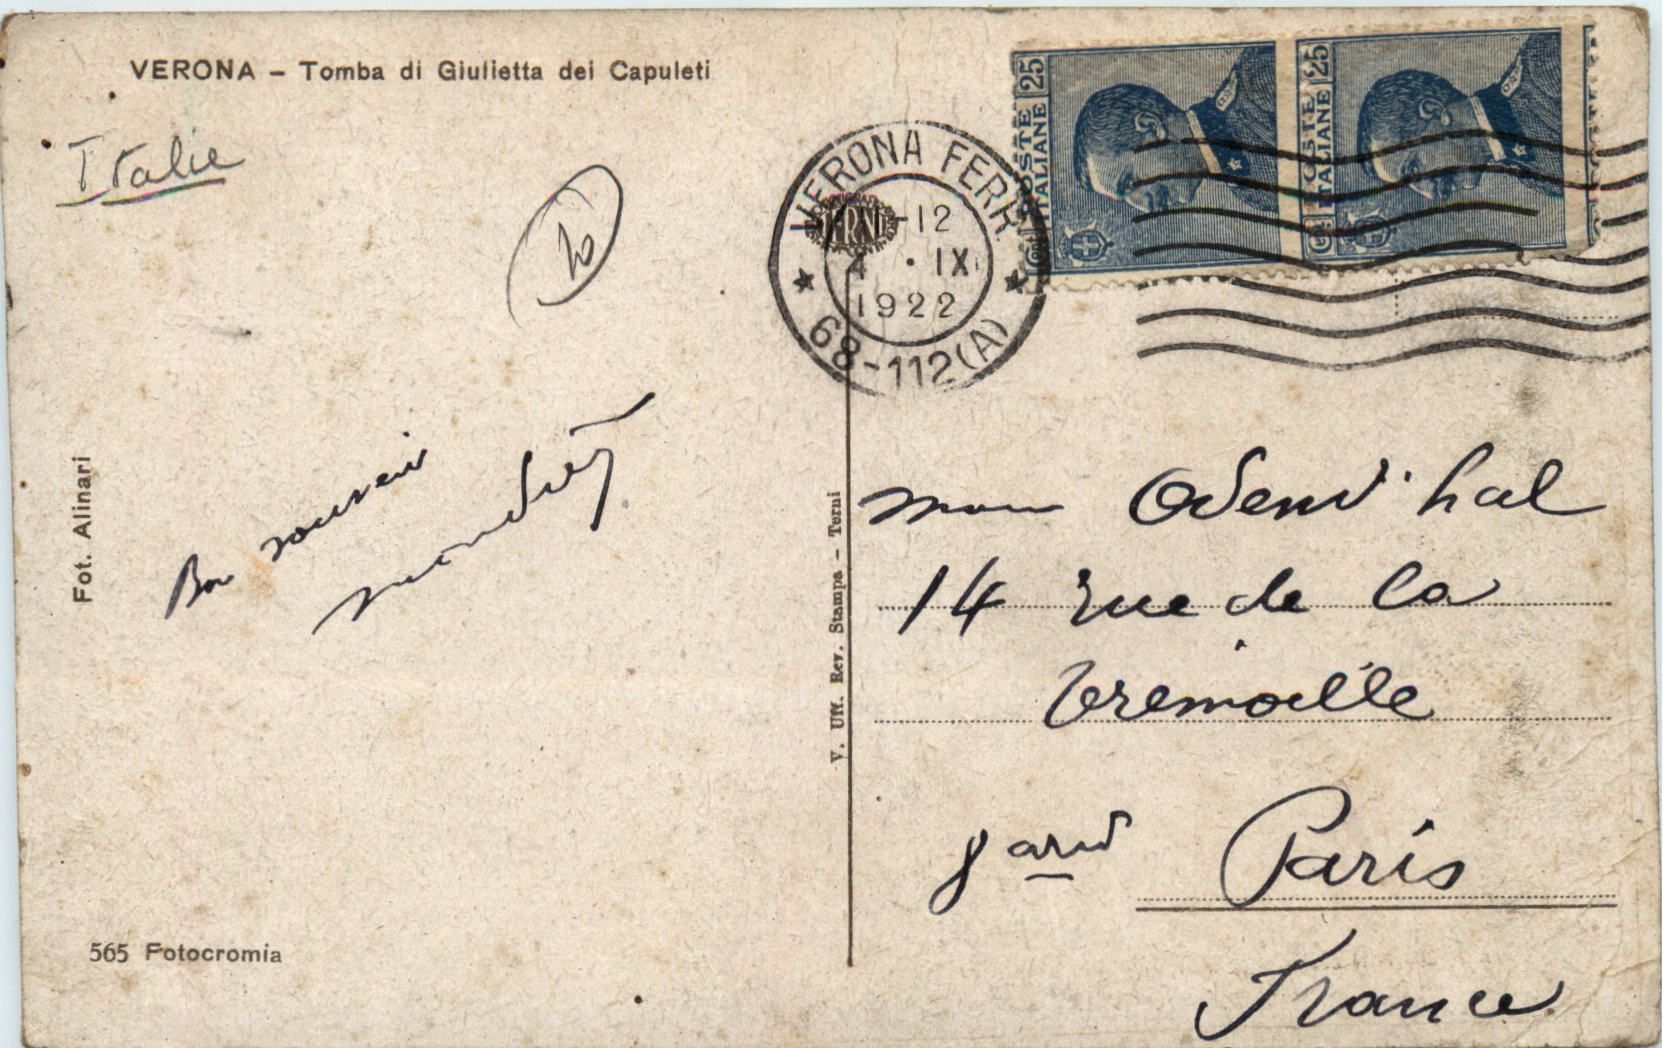 VERONA – Tomba di Giulietta dei Capuleti
Italie
20
Bon souvenir
Fot. Alinari
565 Fotocromia
V. Uff. Rev. Stampa – Terni
VERONA FERR.
-12
4 • IX
1922
68-112(A)
POSTE ITALIANE 25
POSTE ITALIANE 25
Odend'hal
14 rue de la
Tremoille
8 ard Paris
France